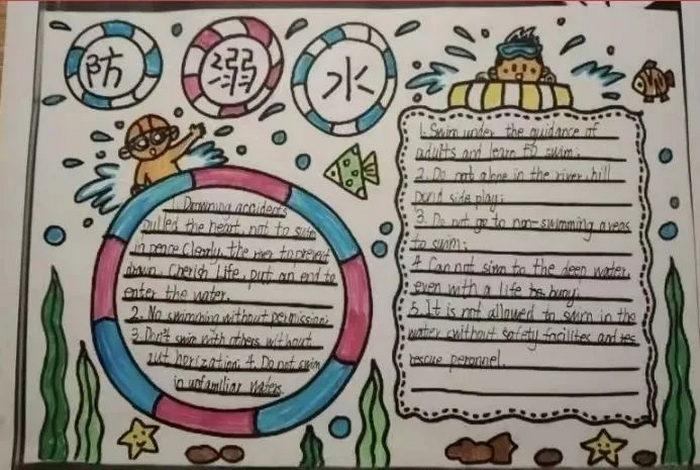 防溺水
1. Drowning accidents
pulled the heart, not to sure
in peace. Clearly, the river to prevent
drown. Cherish life, put an end to
enter the water.
2. No swimming without permission;
3. Don't swim with others without
authorization; 4. Do not swim
in unfamiliar waters.
1. Swim under the guidance of
adults and learn to swim;
2. Do not alone in the river, hill
pond side play;
3. Do not go to non-swimming areas
to swim;
4. Can not sim to the deep water,
even with a life buoy;
5. It is not allowed to swim in the
water without safety facilites and res
rescue personnel.